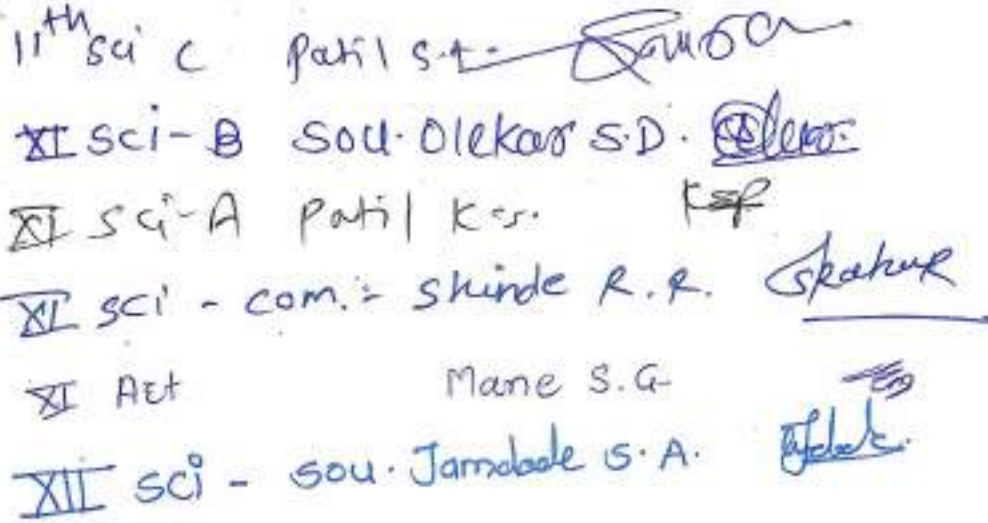 11th Sci C Patil S.t.
XI Sci-B Sou. Olekar S.D.
XI Sci-A Patil K.S. KSP
XI Sci - com.:- Shinde R.R.
XI Art Mane S.G.
XII Sci - Sou. Jamdade S.A.